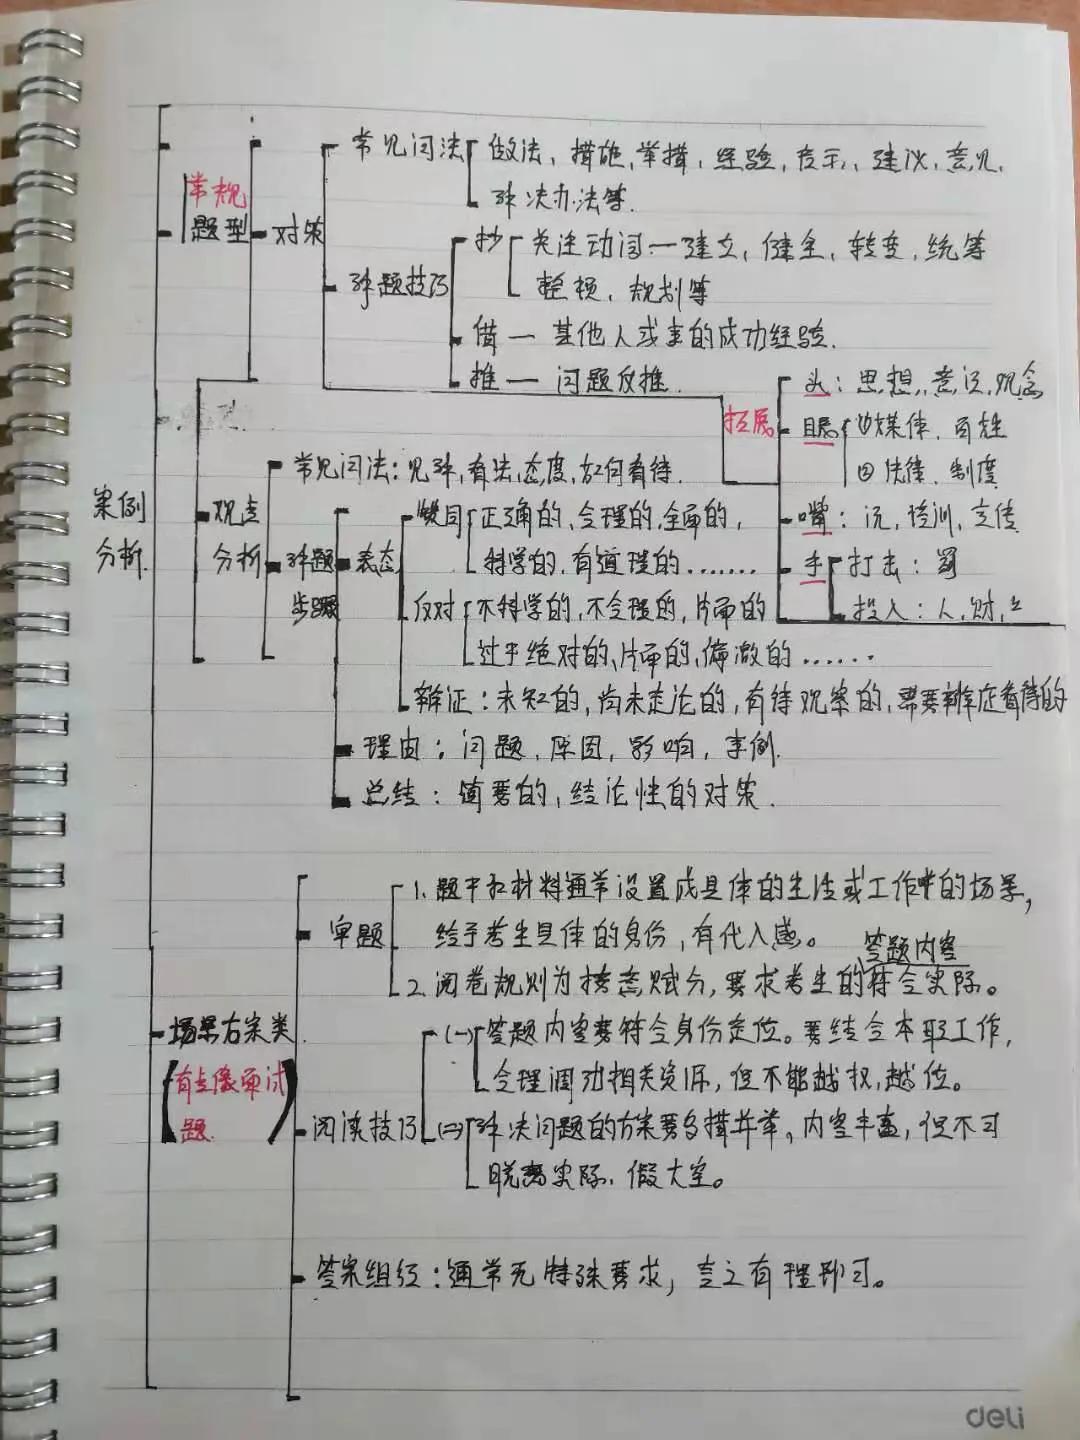 常见问法 做法、措施、举措、经验、启示、建议、意见、
解决办法等.
常规
题型
对策
抄 关注动词一建立,健全,转变,统筹
解题技巧
整顿、规划等
借 一 其他人或事的成功经验.
推 一 问题反推.
拓展
头: 思想,意识,观念
眼 ①媒体、百姓
②法律、制度
嘴: 说,培训,宣传
手 打击: 罚
投入: 人,财,
案例
分析.
观点
分析
常见问法: 见解,有法,态度,如何看待.
解题
步骤
表态
赞同 正确的、合理的,全面的,
科学的,有道理的.......
反对 不科学的,不合理的,片面的
过于绝对的、片面的,偏激的......
辩证: 未知的,尚未定论的,有待观察的,需要辩证看待的
理由: 问题,原因,影响,事例.
总结: 简要的,结论性的对策.
审题
1. 题干和材料通常设置成具体的生活或工作中的场景,
给予考生具体的身份,有代入感。
答题内容
2. 阅卷规则为按意赋分,要求考生的符合实际。
场景方案类
(有点像面试
题.)
阅读技巧
(一) 答题内容要符合身份定位。要结合本职工作,
合理调动相关资源,但不能越权,越位。
(二) 解决问题的方案要多措并举,内容丰富,但不可
脱离实际、假大空。
答案组织: 通常无特殊要求,言之有理即可。
deli